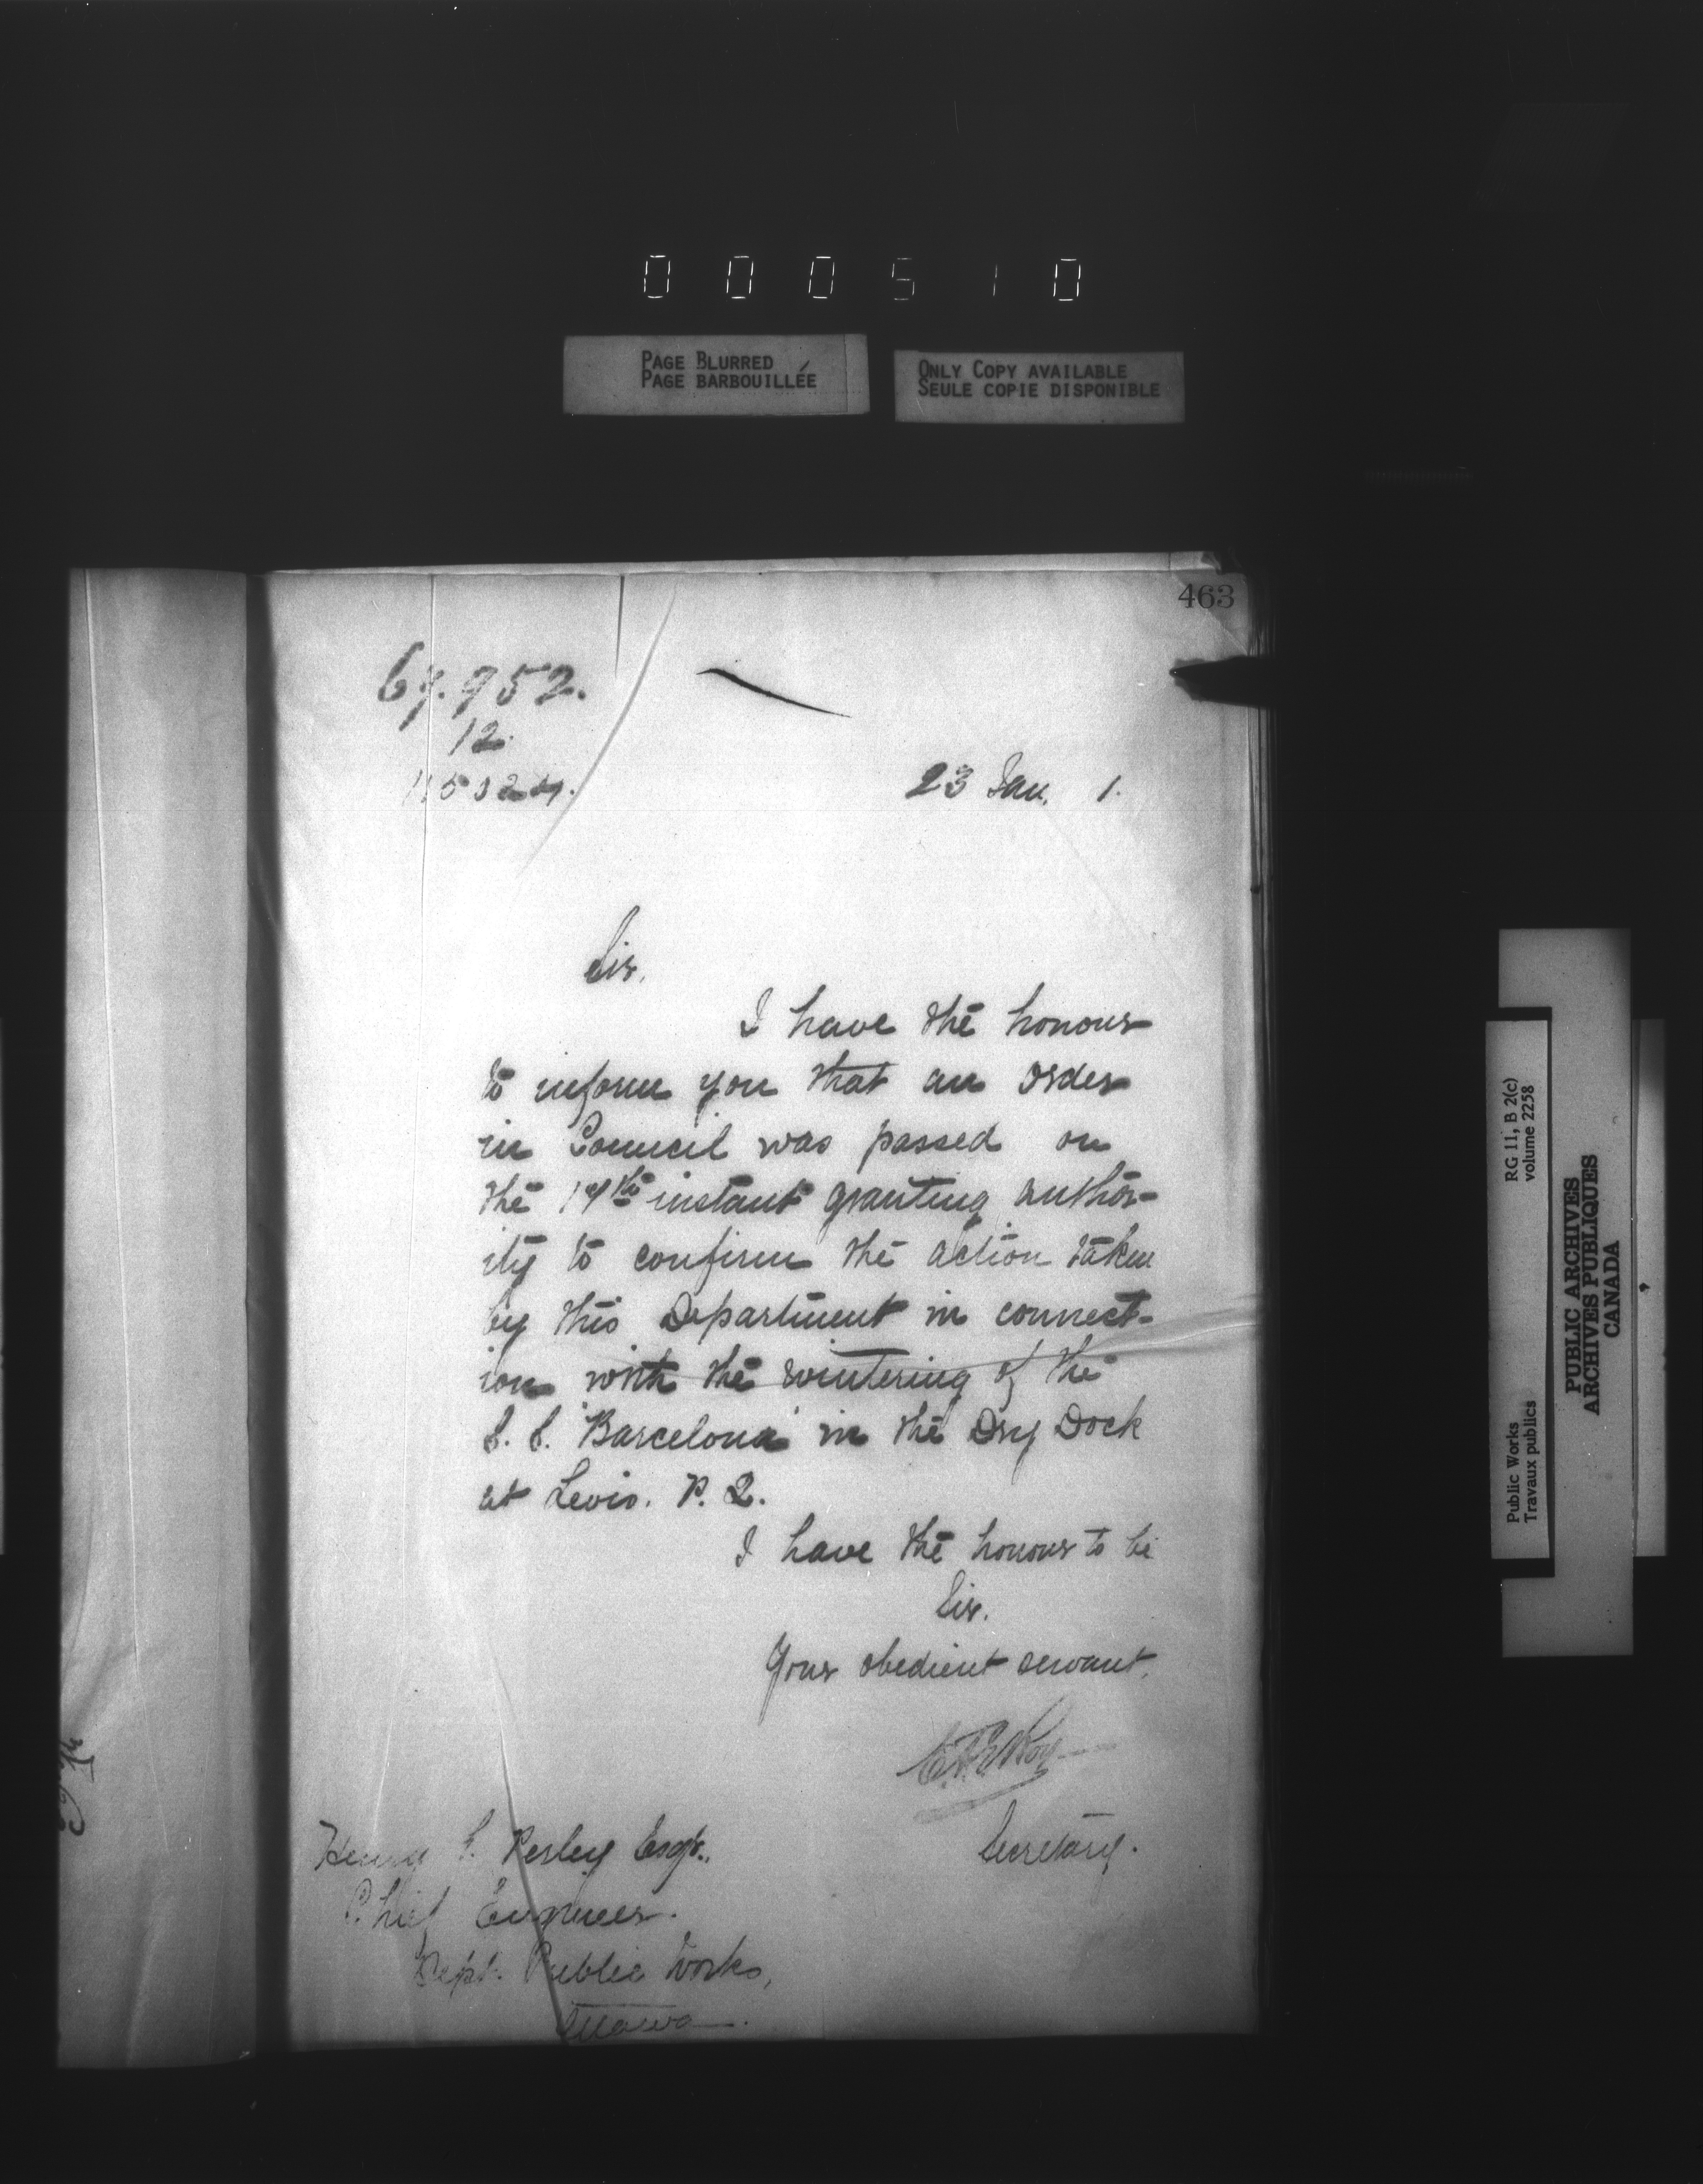 000510
PAGE BLURRED
PAGE BARBOUILLÉE
ONLY COPY AVAILABLE
SEULE COPIE DISPONIBLE
463
12.
23 Jan. 1.
Sir,
I have the honour
to inform you that an Order
in Council was passed on
the instant granting author-
ity to confirm the action taken
by this Department in connect-
ion with the wintering of the
S. S. "Barcelona" in the Dry Dock
at Levis. P. Q.
I have the honour to be
Sir.
Your obedient servant,
Secretary.
Henry Esqr.,
Chief Engineer.
Dept. Public Works,
Ottawa.
RG 11, B 2(c)
volume 2258
Public Works
Travaux publics
PUBLIC ARCHIVES
ARCHIVES PUBLIQUES
CANADA